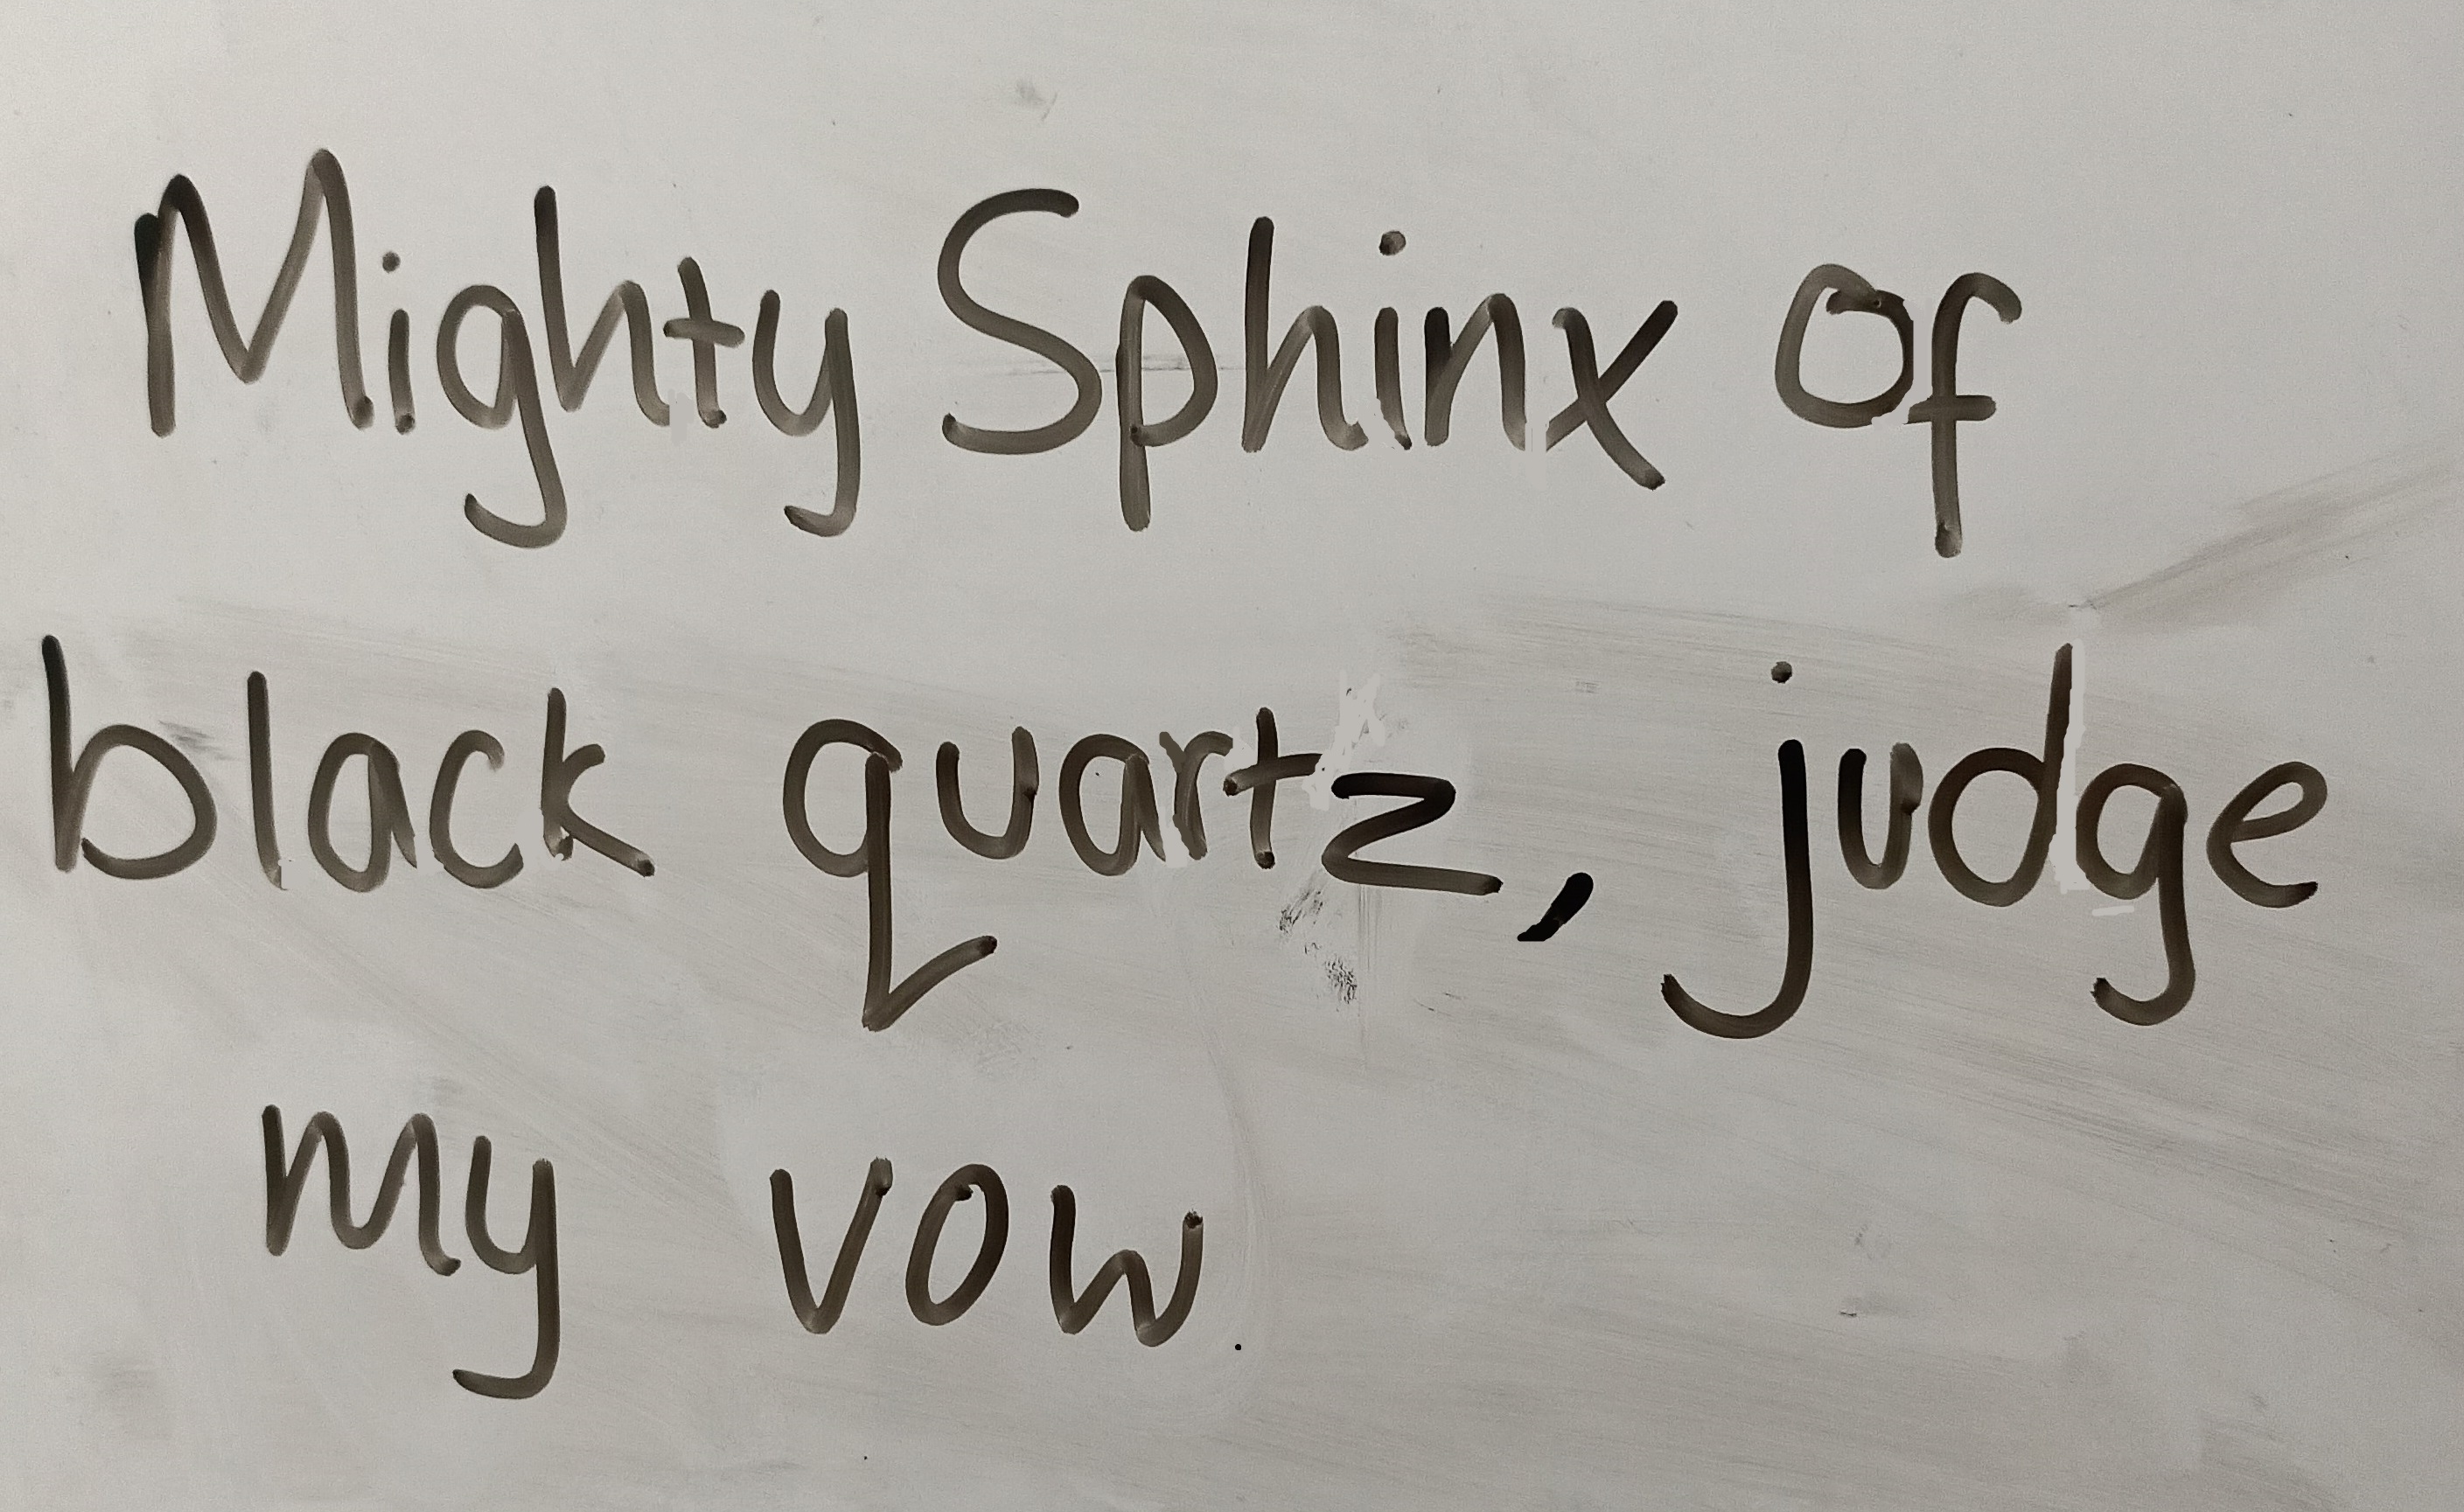 Mighty Sphinx of
black quartz, judge
my vow.